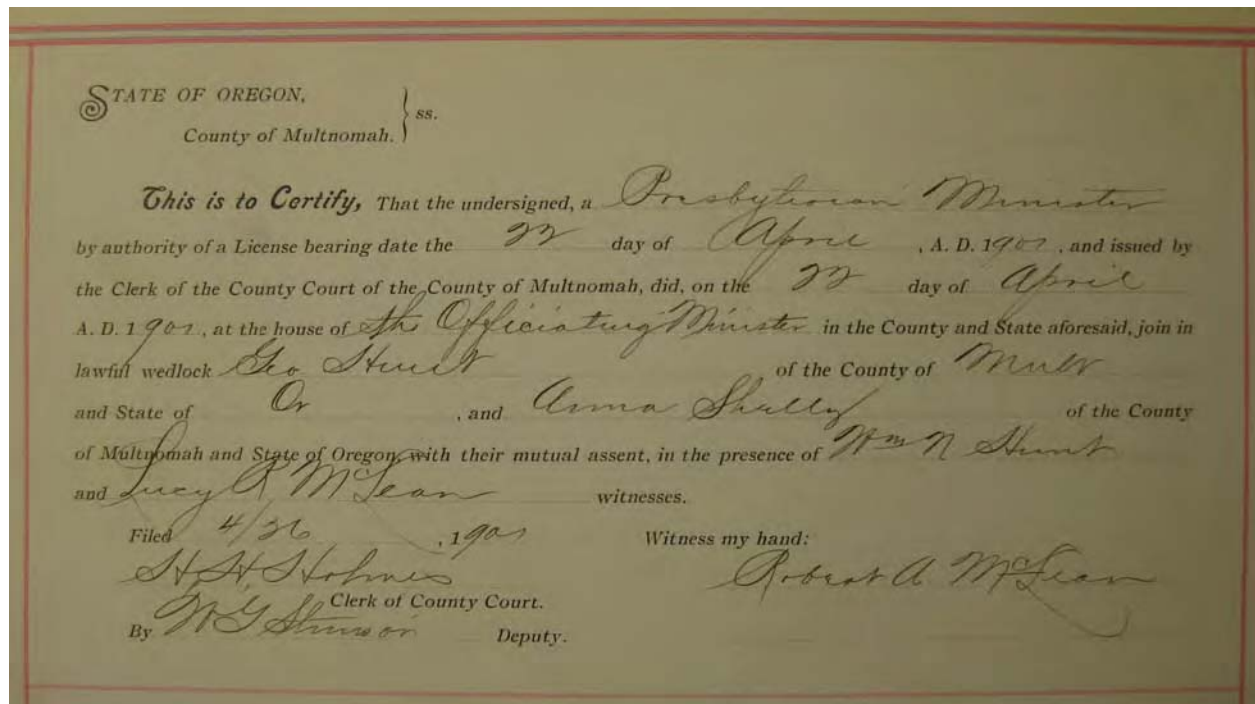 STATE OF OREGON,
County of Multnomah. } ss.
This is to Certify, That the undersigned, a Presbyterian Minister
by authority of a License bearing date the 22 day of April, A. D. 1901, and issued by
the Clerk of the County Court of the County of Multnomah, did, on the 22 day of April
A. D. 1901, at the house of the Officiating Minister in the County and State aforesaid, join in
lawful wedlock Geo Hunt of the County of Mult
and State of Or, and Anna Shelly of the County
of Multnomah and State of Oregon, with their mutual assent, in the presence of Wm N Hunt
and Lucy R McLean witnesses.
Filed 4/26, 1901 Witness my hand:
H H Holmes Robert A McLean
Clerk of County Court.
By W G Stimson Deputy.